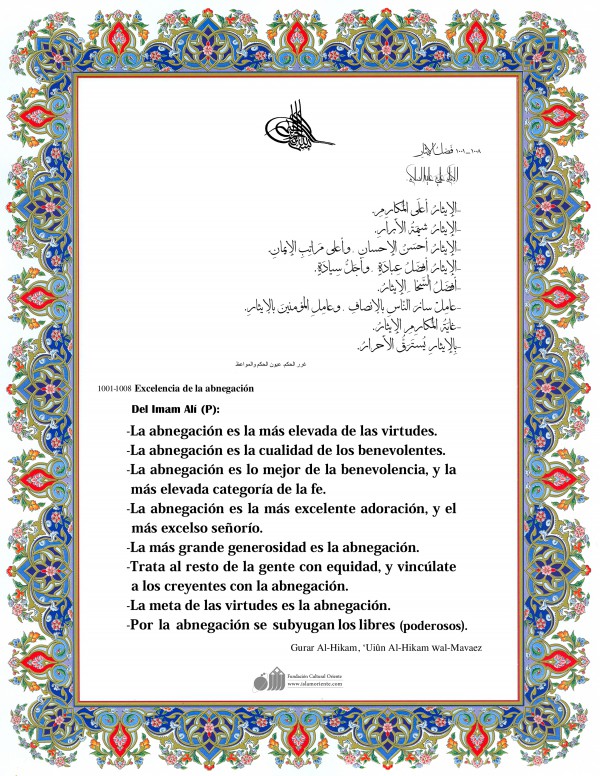 ١٠٠١-١٠٠٨ فَضلُ الإيثارِ
الإمامُ عليٌّ عليه السلام
-الإيثارُ أعلَى المَكارِمِ.
-الإيثارُ شِيمَةُ الأبرارِ.
-الإيثارُ أحسَنُ الإحسانِ . وأعلى مَراتِبِ الإيمانِ.
-الإيثارُ أفضَلُ عِبادَةٍ . وأجَلُّ سِيادَةٍ.
-أفضَلُ السَّخاءِ الإيثارُ.
-عامِلْ سائرَ النّاسِ بالإنصافِ . وعامِلِ المُؤمنينَ بالإيثارِ.
-غايَةُ المَكارِمِ الإيثارُ.
-بِالإيثارِ يُستَرَقُّ الأحرارُ.
غرر الحكم، عيون الحكم والمواعظ
1001-1008 Excelencia de la abnegación
Del Imam Alí (P):
-La abnegación es la más elevada de las virtudes.
-La abnegación es la cualidad de los benevolentes.
-La abnegación es lo mejor de la benevolencia, y la
más elevada categoría de la fe.
-La abnegación es la más excelente adoración, y el
más excelso señorío.
-La más grande generosidad es la abnegación.
-Trata al resto de la gente con equidad, y vincúlate
a los creyentes con la abnegación.
-La meta de las virtudes es la abnegación.
-Por la abnegación se subyugan los libres (poderosos).
Gurar Al-Hikam, ‘Uiûn Al-Hikam wal-Mavaez
Fundación Cultural Oriente
www.islamoriente.com